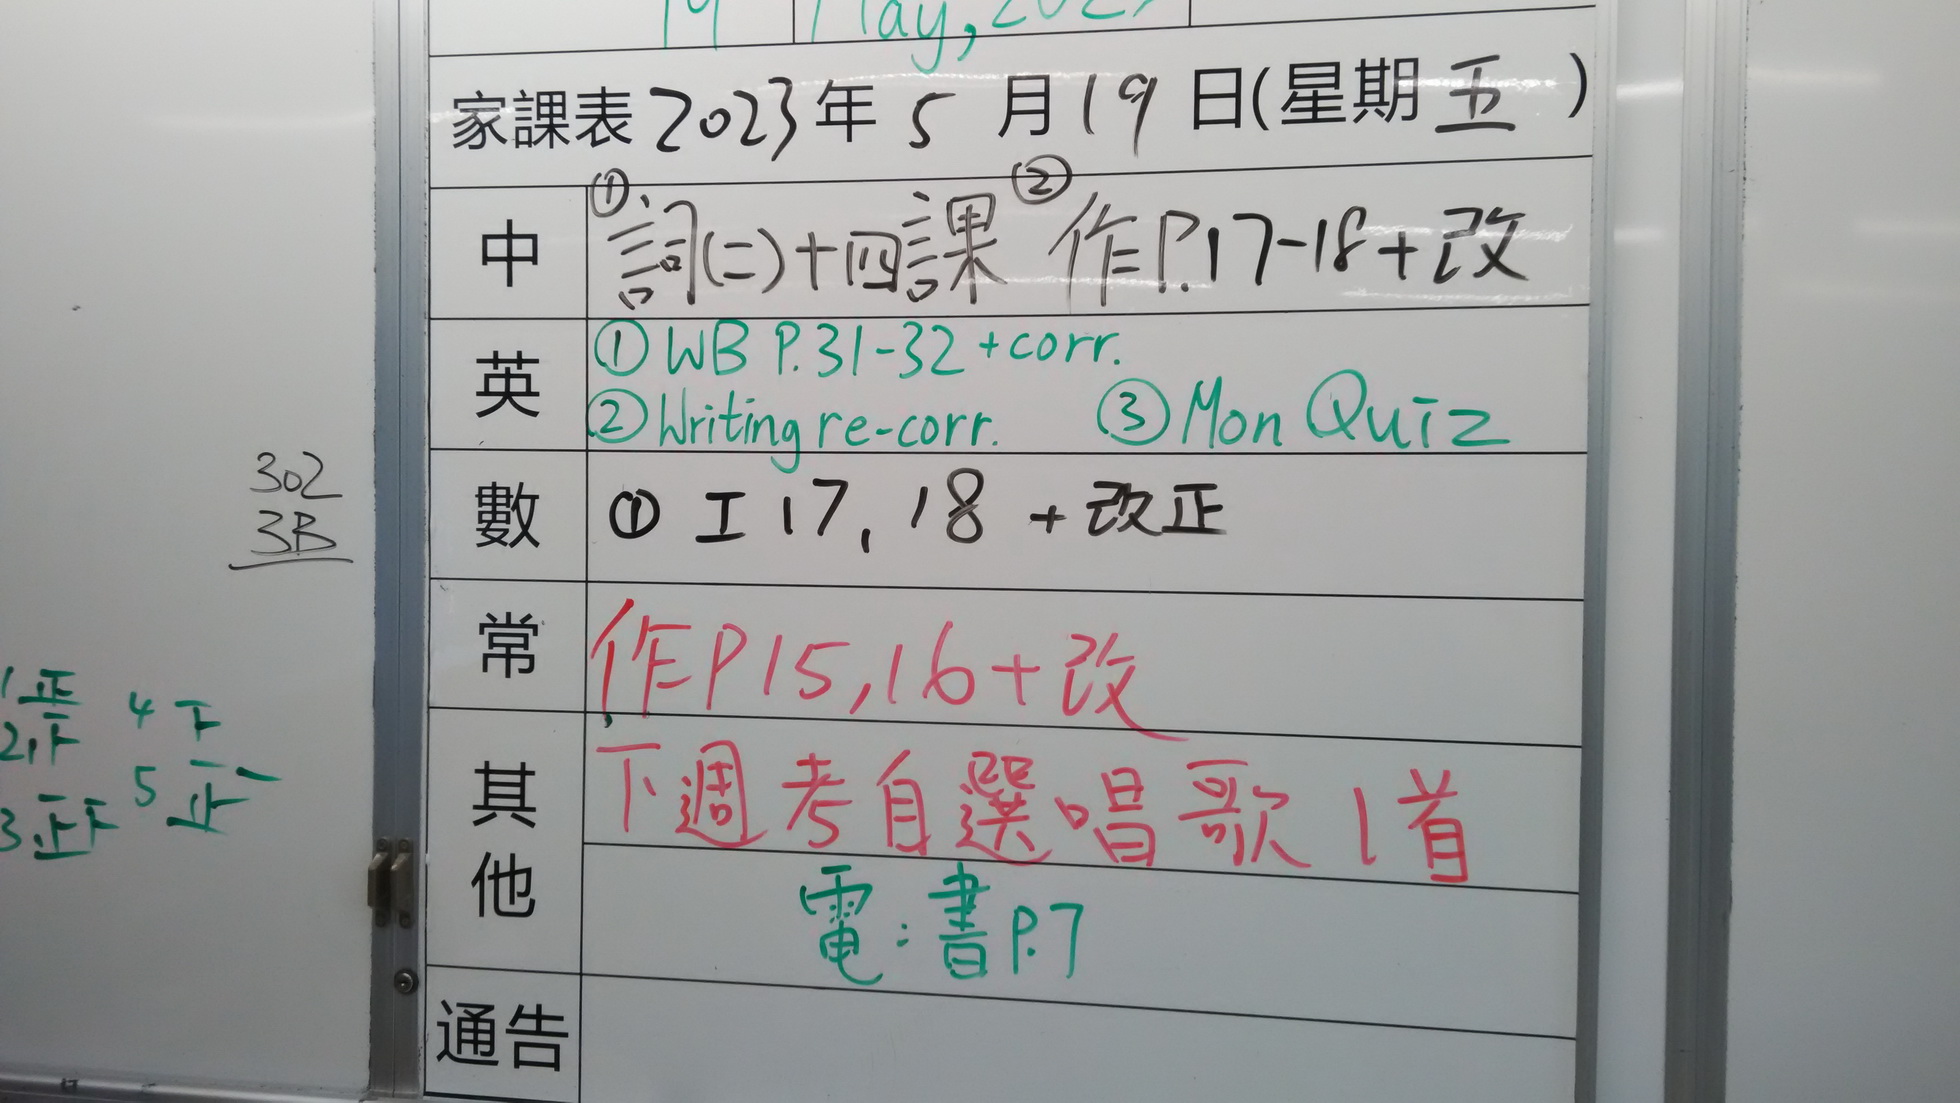 19 May, 2023
家課表 2023年 5 月 19 日(星期 五 )
中 ①詞(二)十四課 ②作P.17-18+改
英 ①WB P.31-32 +corr.
②Writing re-corr. ③Mon Quiz
數 ① 工 17, 18 + 改正
常 作P15,16+改
其他 下週考自選唱歌1首
電:書P.7
通告
302
3B
1.正 4 下
2.下 5 正一
3.正下